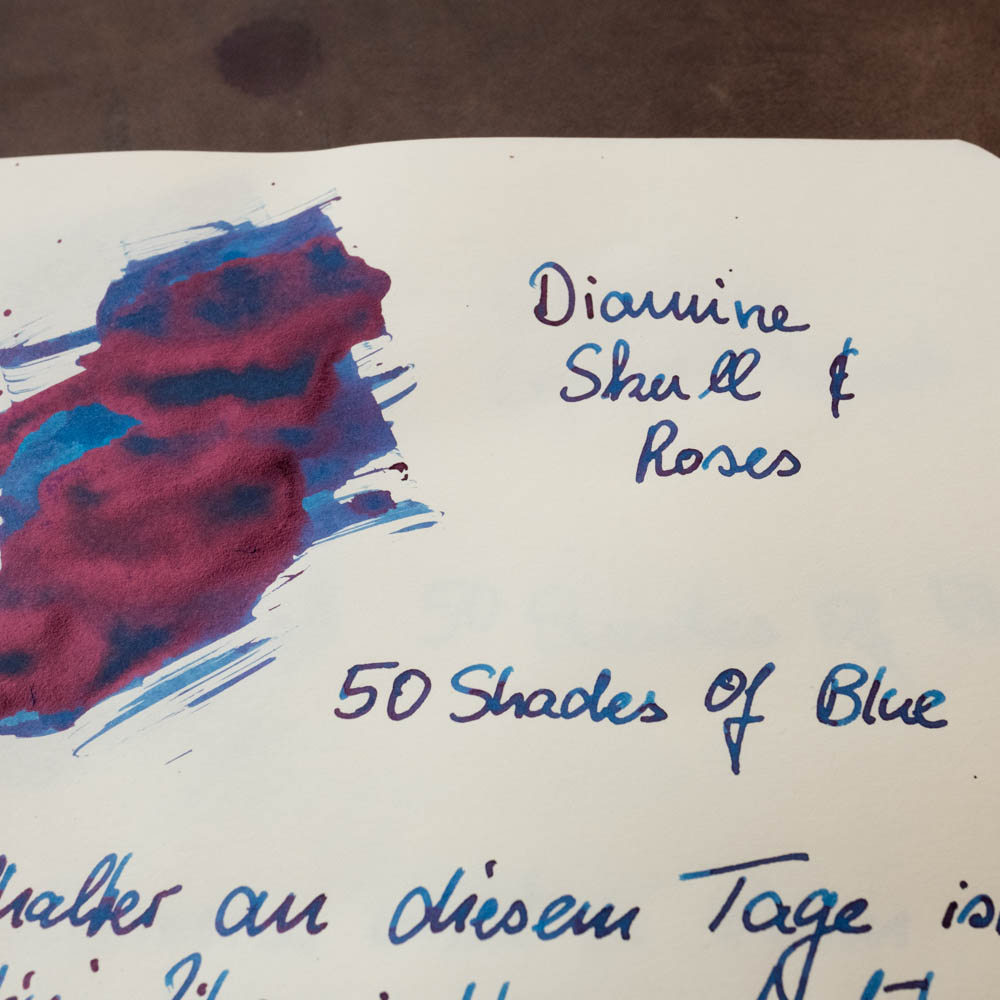 Diamine
Skull &
Roses
50 Shades Of Blue
halter an diesem Tage is